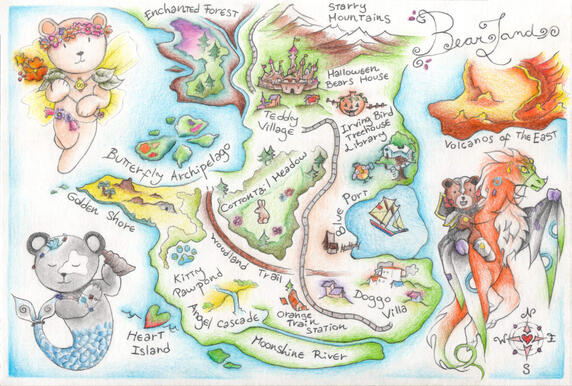 Enchanted Forest
Starry
Mountains
BearLand
Halloween
Bears House
Teddy
Village
Irving Bird
Treehouse
Library
Volcanos of the East
Butterfly Archipelago
Cottontail Meadow
Golden Shore
Blue Port
Woodland Trail
Kitty
Pawpond
Angel Cascade
Orange
Train
Station
Doggo
Villa
Heart
Island
Moonshine River
N
W
E
S